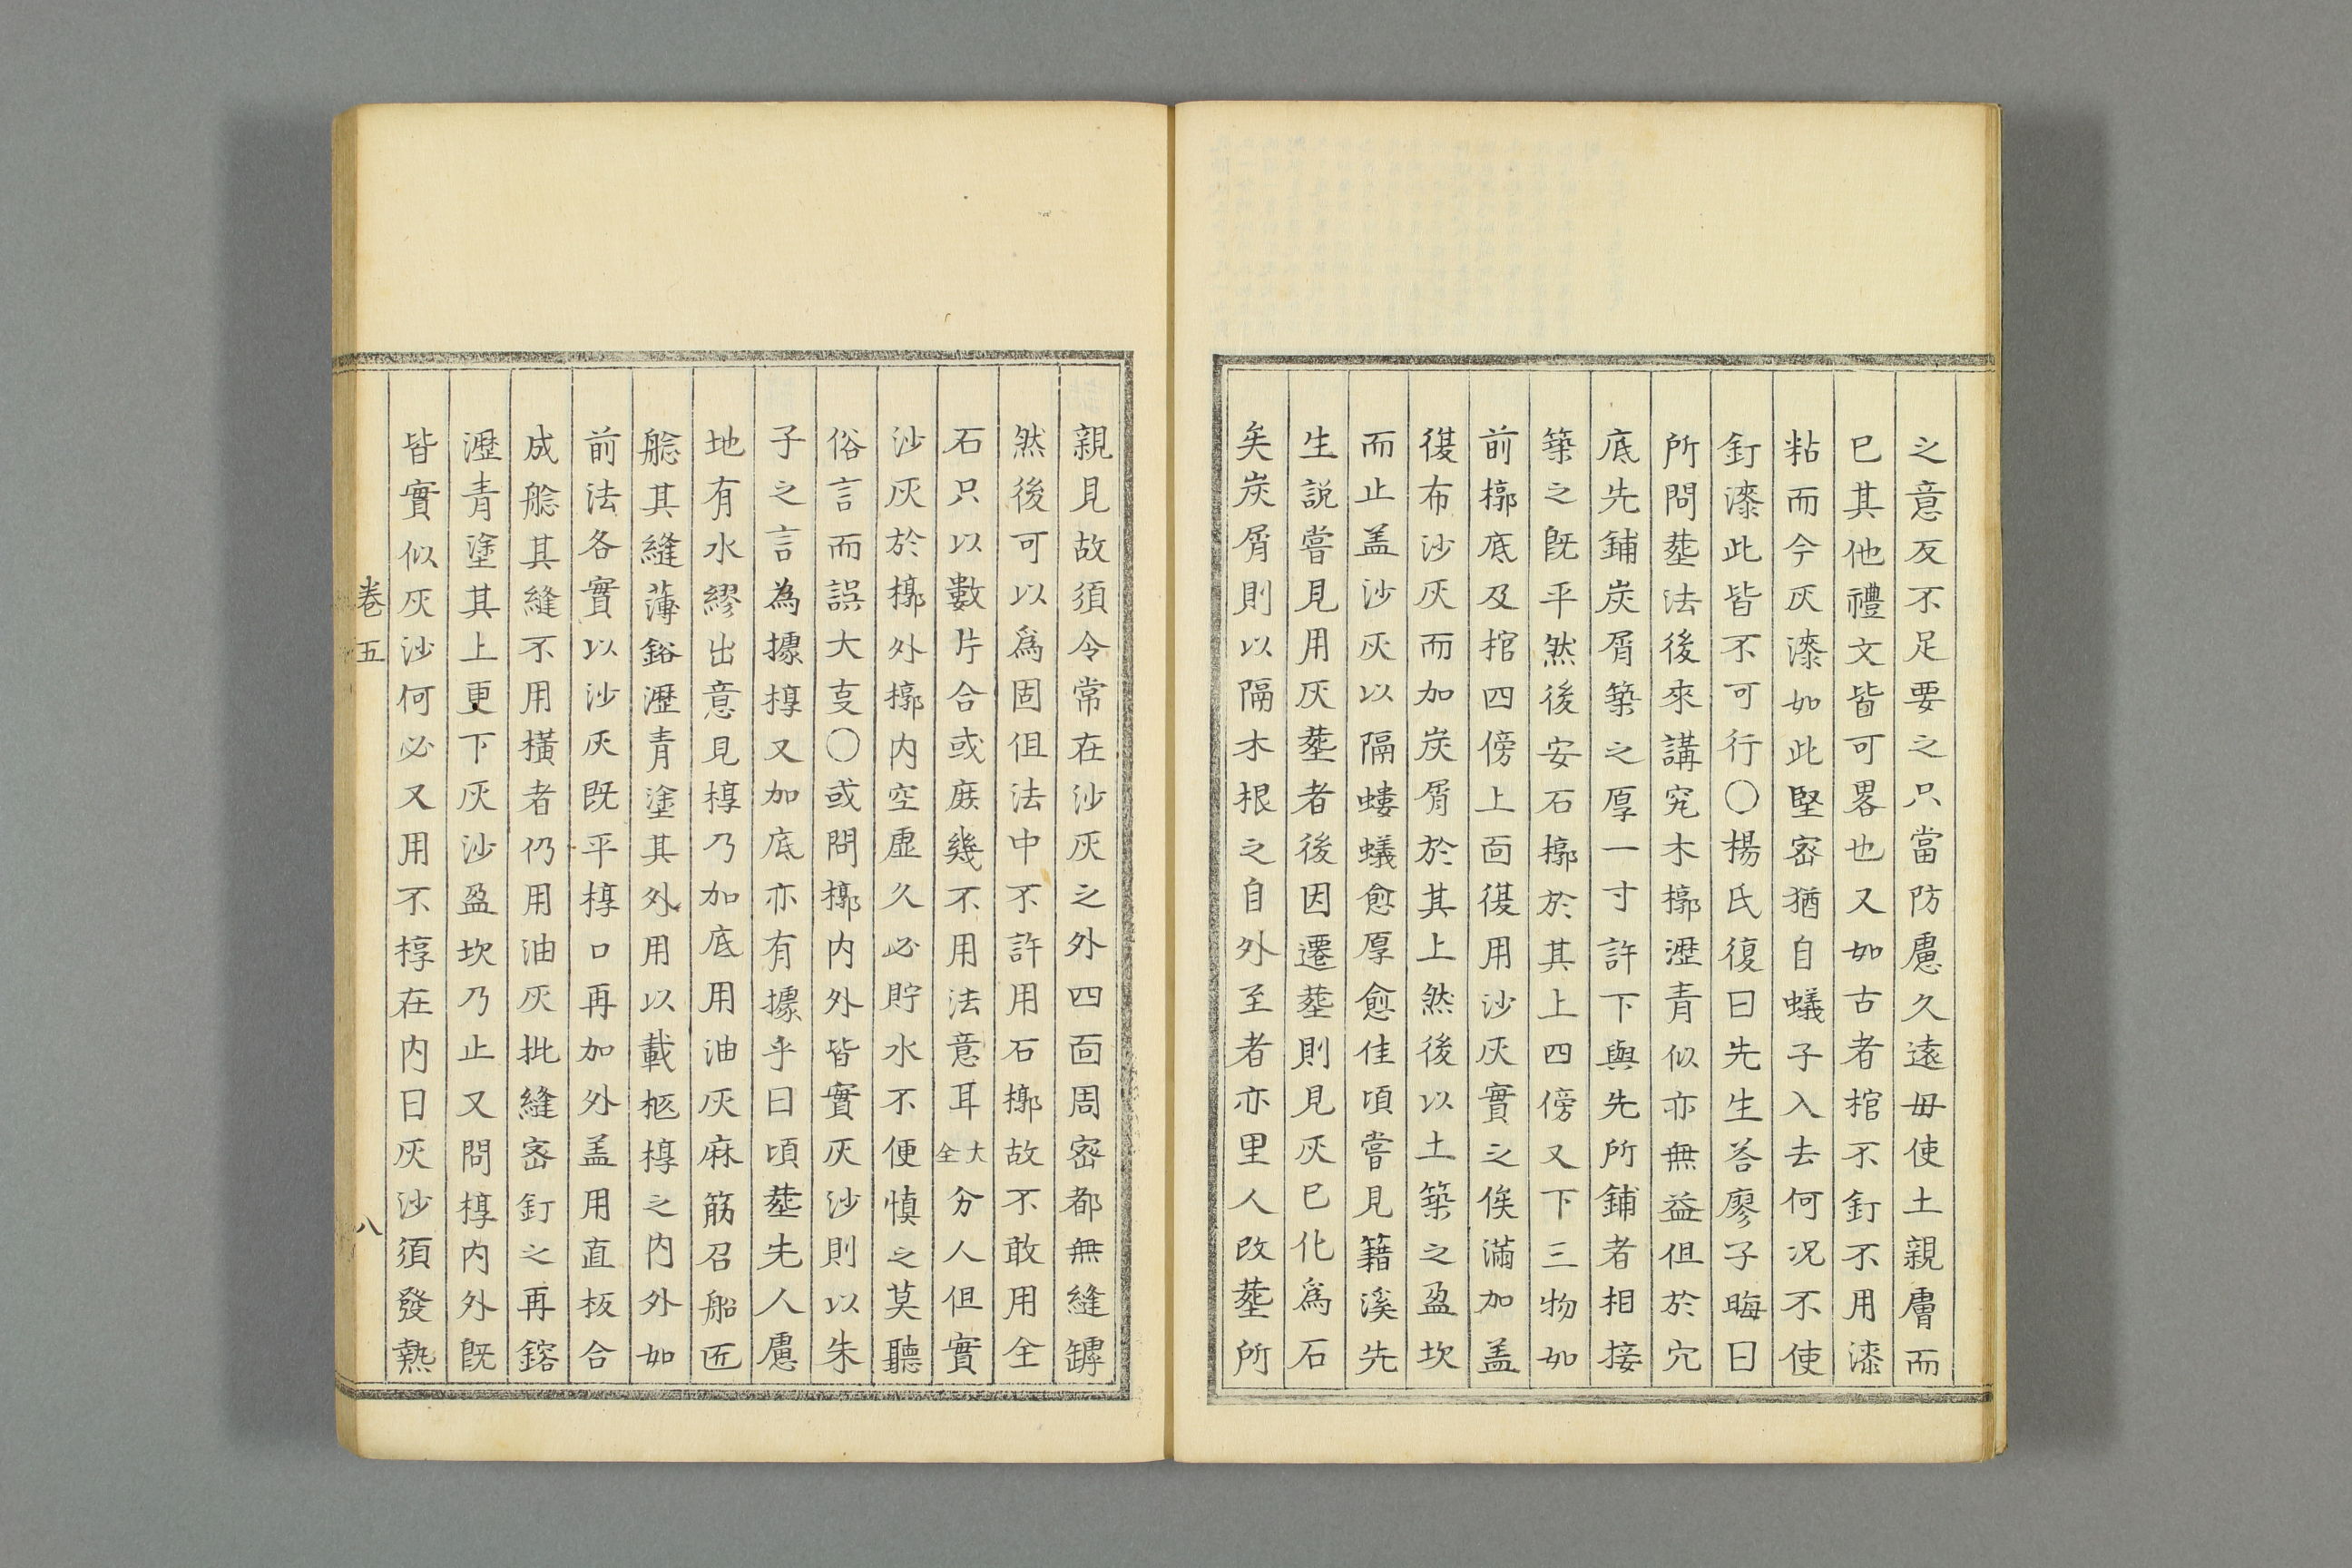 之意反不足要之只當防慮久遠毋使土親膚而
已其他禮文皆可畧也又如古者棺不釘不用漆
粘而今灰漆如此堅宻猶自蟻子入去何况不使
釘漆此皆不可行〇楊氏復曰先生荅廖子晦曰
所問塟法後來講究木槨瀝青似亦無益但於穴
底先鋪炭屑築之厚一寸許下與先所鋪者相接
築之旣平然後安石槨於其上四傍又下三物如
前槨底及棺四傍上面復用沙灰實之俟滿加盖
復布沙灰而加炭屑於其上然後以土築之盈坎
而止盖沙灰以隔螻蟻愈厚愈佳頃嘗見籍溪先
生説嘗見用灰塟者後因遷塟則見灰已化爲石
矣炭屑則以隔木根之自外至者亦里人改塟所
親見故須令常在沙灰之外四面周宻都無縫罅
然後可以爲固但法中不許用石槨故不敢用全
石只以數片合或庻幾不用法意耳大全分人但實
沙灰於槨外槨内空虚久必貯水不便慎之莫聽
俗言而誤大叓〇或問槨内外皆實灰沙則以朱
子之言為據椁又加底亦有據乎曰頃塟先人慮
地有水繆出意見椁乃加底用油灰麻筋召船匠
艌其縫薄鎔瀝青塗其外用以載柩椁之内外如
前法各實以沙灰旣平椁口再加外盖用直板合
成艌其縫不用橫者仍用油灰批縫宻釘之再鎔
瀝青塗其上更下灰沙盈坎乃止又問椁内外旣
皆實似灰沙何必又用不椁在内曰灰沙須發熱
卷五
八